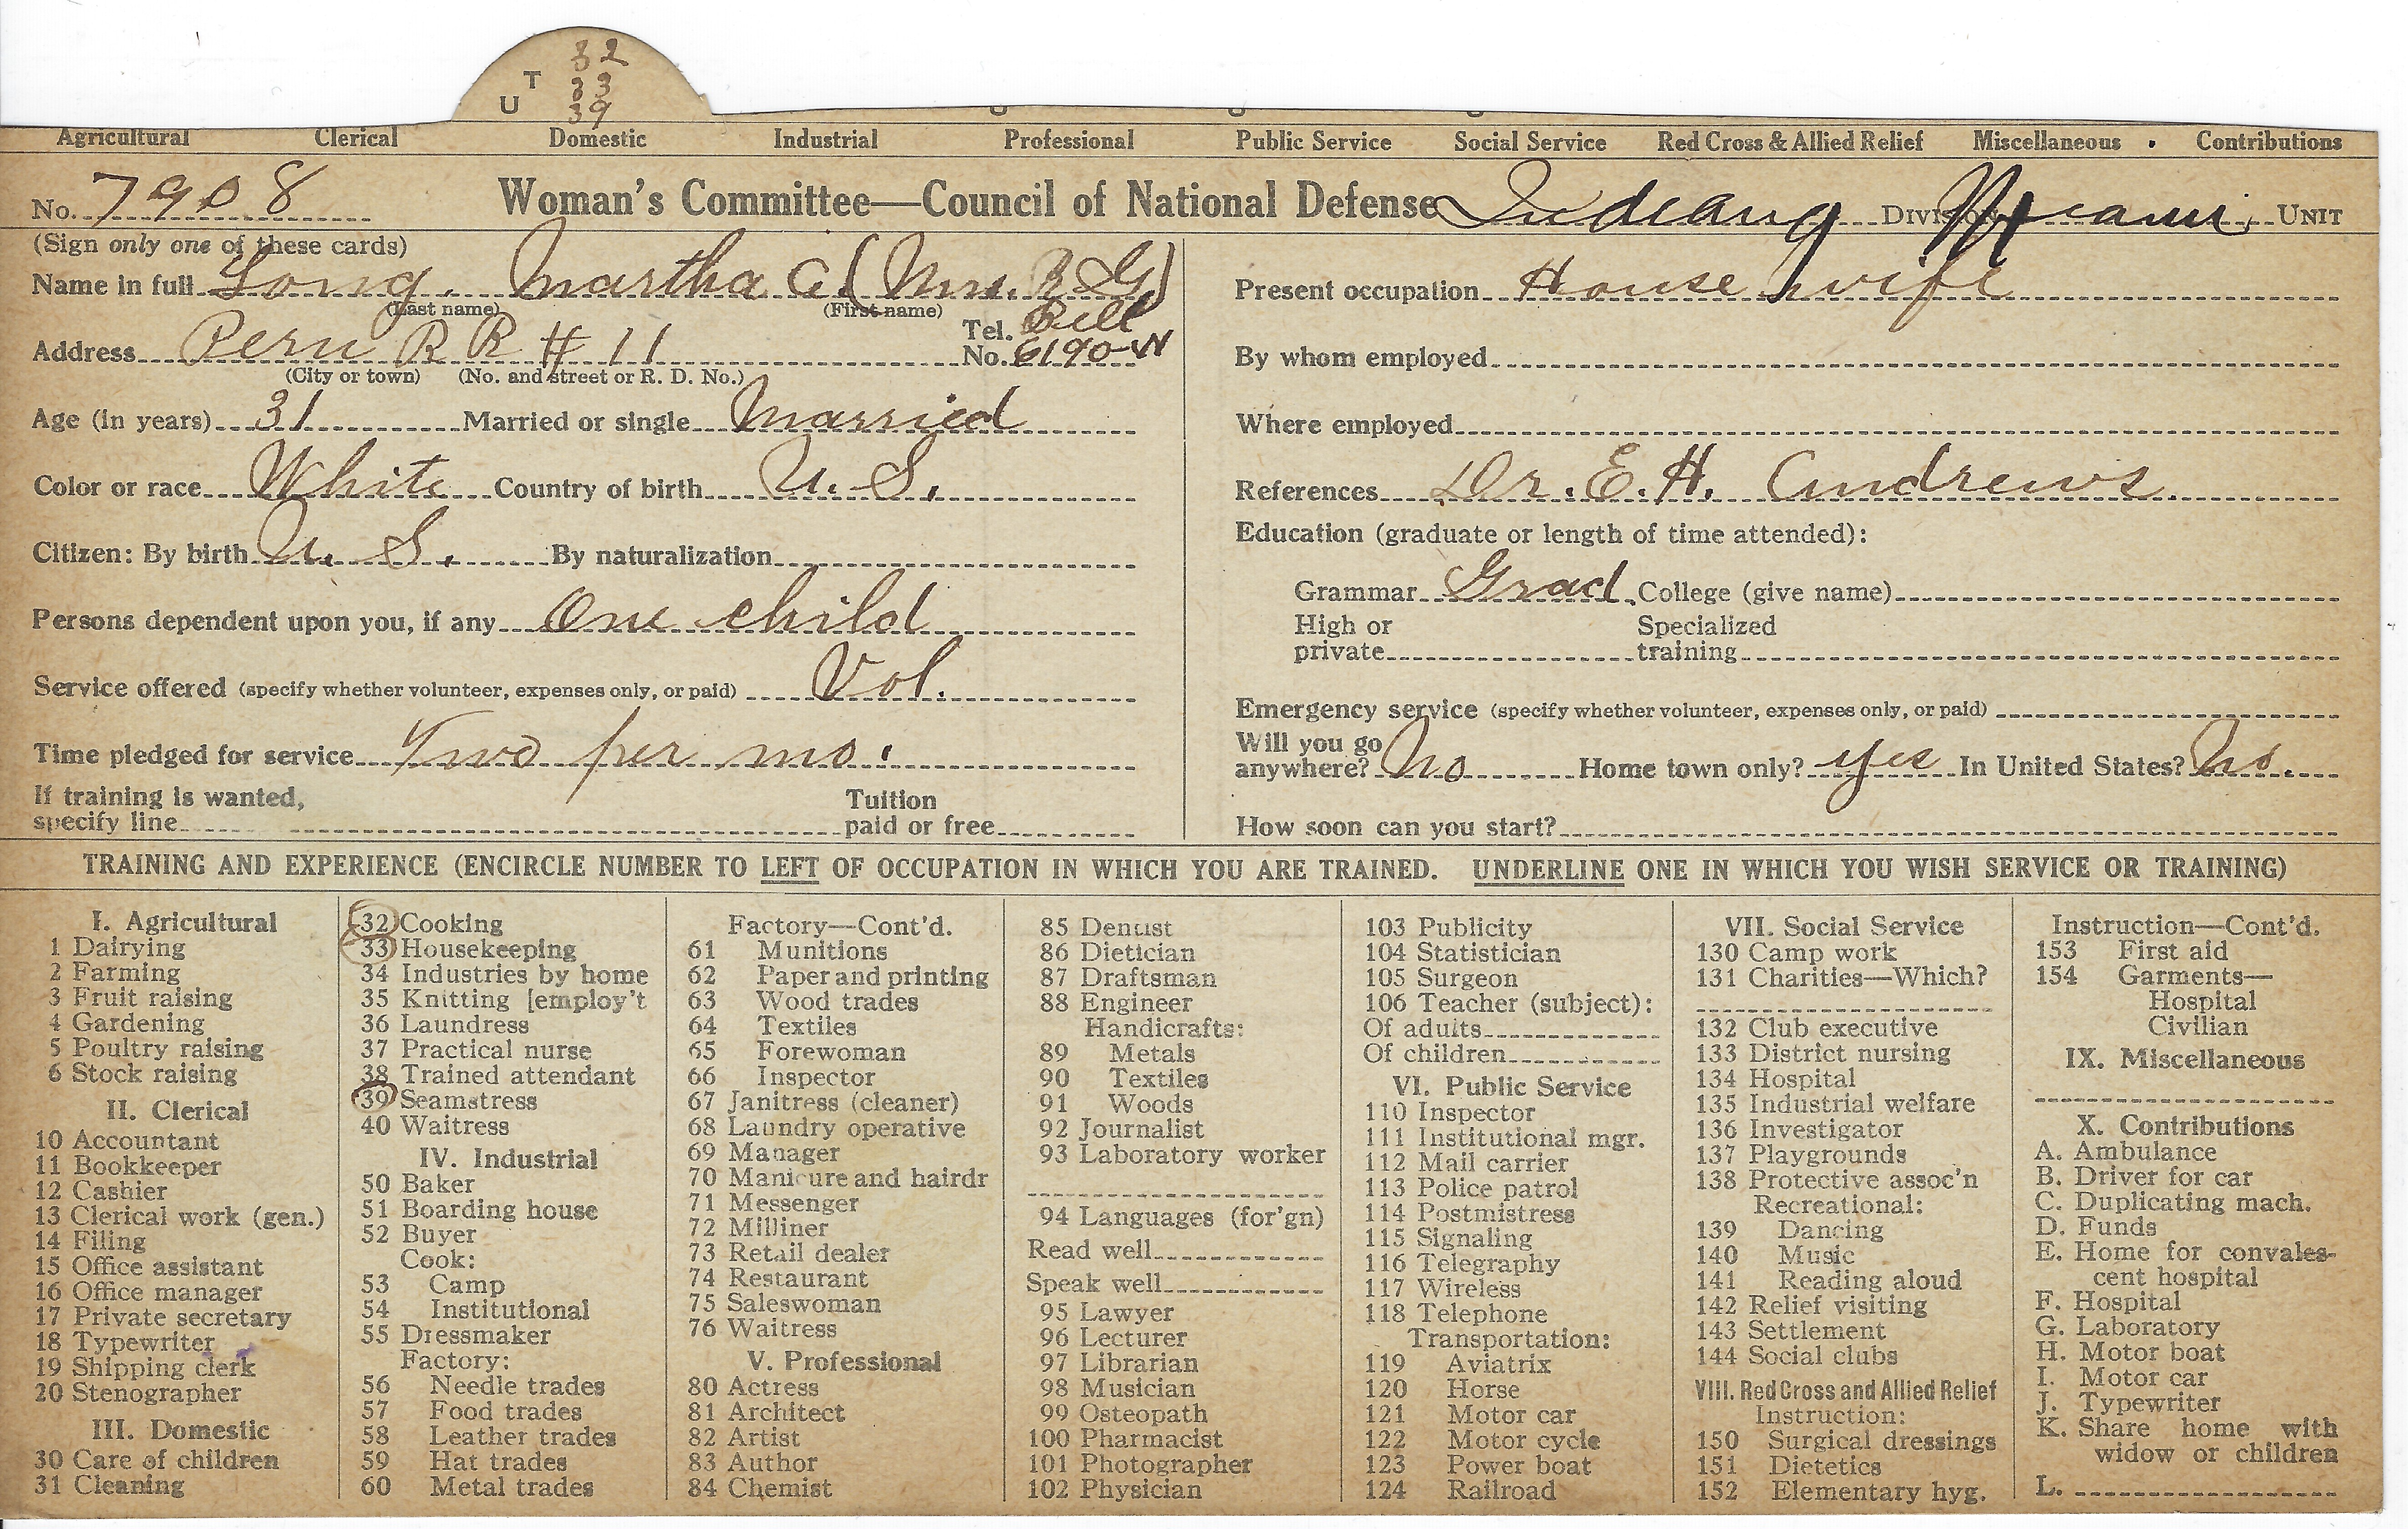 32
T 33
U 39
Agricultural Clerical Domestic Industrial Professional Public Service Social Service Red Cross & Allied Relief Miscellaneous Contributions
No. 7908 Woman's Committee—Council of National Defense Indiana Division Miami Unit
(Sign only one of these cards)
Name in full Long, Martha C. (Mrs. R G)
(Last name) (First name)
Address Peru R R # 11 Tel. No. Bell 6190-W
(City or town) (No. and street or R. D. No.)
Age (in years) 31 Married or single Married
Color or race White Country of birth U. S.
Citizen: By birth U. S. By naturalization
Persons dependent upon you, if any One child
Service offered (specify whether volunteer, expenses only, or paid) Vol.
Time pledged for service Two per mo.
If training is wanted, specify line Tuition paid or free
Present occupation House wife
By whom employed
Where employed
References Dr. E. H. Andrews.
Education (graduate or length of time attended):
Grammar Grad. College (give name)
High or private Specialized training
Emergency service (specify whether volunteer, expenses only, or paid)
Will you go anywhere? No Home town only? yes In United States? No.
How soon can you start?
TRAINING AND EXPERIENCE (ENCIRCLE NUMBER TO LEFT OF OCCUPATION IN WHICH YOU ARE TRAINED. UNDERLINE ONE IN WHICH YOU WISH SERVICE OR TRAINING)
I. Agricultural
1 Dairying
2 Farming
3 Fruit raising
4 Gardening
5 Poultry raising
6 Stock raising
II. Clerical
10 Accountant
11 Bookkeeper
12 Cashier
13 Clerical work (gen.)
14 Filing
15 Office assistant
16 Office manager
17 Private secretary
18 Typewriter
19 Shipping clerk
20 Stenographer
III. Domestic
30 Care of children
31 Cleaning
32 Cooking
33 Housekeeping
34 Industries by home
35 Knitting [employ't
36 Laundress
37 Practical nurse
38 Trained attendant
39 Seamstress
40 Waitress
IV. Industrial
50 Baker
51 Boarding house
52 Buyer
Cook:
53 Camp
54 Institutional
55 Dressmaker
Factory:
56 Needle trades
57 Food trades
58 Leather trades
59 Hat trades
60 Metal trades
Factory—Cont'd.
61 Munitions
62 Paper and printing
63 Wood trades
64 Textiles
65 Forewoman
66 Inspector
67 Janitress (cleaner)
68 Laundry operative
69 Manager
70 Manicure and hairdr
71 Messenger
72 Milliner
73 Retail dealer
74 Restaurant
75 Saleswoman
76 Waitress
V. Professional
80 Actress
81 Architect
82 Artist
83 Author
84 Chemist
85 Dentist
86 Dietician
87 Draftsman
88 Engineer
Handicrafts:
89 Metals
90 Textiles
91 Woods
92 Journalist
93 Laboratory worker
94 Languages (for'gn)
Read well
Speak well
95 Lawyer
96 Lecturer
97 Librarian
98 Musician
99 Osteopath
100 Pharmacist
101 Photographer
102 Physician
103 Publicity
104 Statistician
105 Surgeon
106 Teacher (subject):
Of adults
Of children
VI. Public Service
110 Inspector
111 Institutional mgr.
112 Mail carrier
113 Police patrol
114 Postmistress
115 Signaling
116 Telegraphy
117 Wireless
118 Telephone
Transportation:
119 Aviatrix
120 Horse
121 Motor car
122 Motor cycle
123 Power boat
124 Railroad
VII. Social Service
130 Camp work
131 Charities—Which?
132 Club executive
133 District nursing
134 Hospital
135 Industrial welfare
136 Investigator
137 Playgrounds
138 Protective assoc'n
Recreational:
139 Dancing
140 Music
141 Reading aloud
142 Relief visiting
143 Settlement
144 Social clubs
VIII. Red Cross and Allied Relief
Instruction:
150 Surgical dressings
151 Dietetics
152 Elementary hyg.
Instruction—Cont'd.
153 First aid
154 Garments—
Hospital
Civilian
IX. Miscellaneous
X. Contributions
A. Ambulance
B. Driver for car
C. Duplicating mach.
D. Funds
E. Home for convales-
cent hospital
F. Hospital
G. Laboratory
H. Motor boat
I. Motor car
J. Typewriter
K. Share home with
widow or children
L.